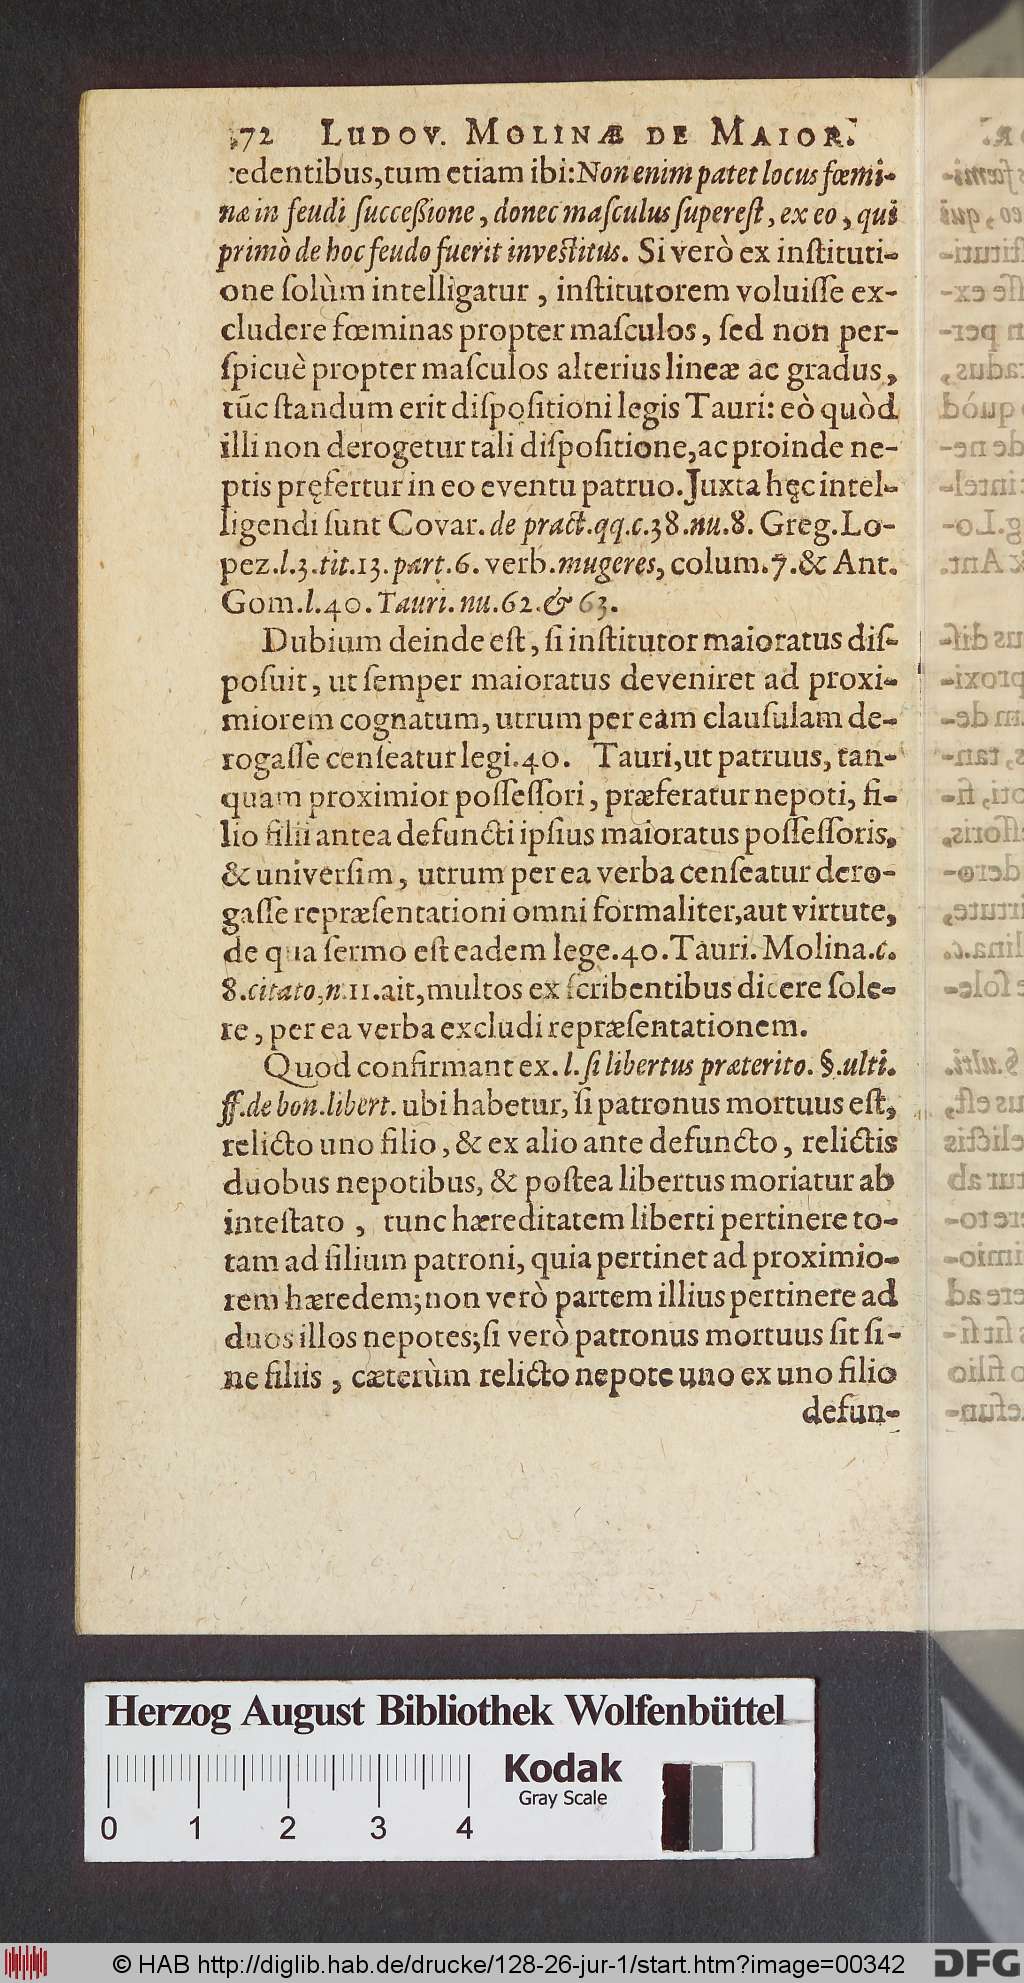 72 LUDOV. MOLINÆ DE MAIOR.
cedentibus,tum etiam ibi:Non enim patet locus fœmi-
næ in feudi ſucceßione, donec maſculus ſupereſt, ex eo, qui
primò de hoc feudo fuerit inveſtitus. Si verò ex inſtituti-
one ſolùm intelligatur, inſtitutorem voluiſſe ex-
cludere fœminas propter maſculos, ſed non per-
ſpicuè propter maſculos alterius lineæ ac gradus,
tūc ſtandum erit diſpoſitioni legis Tauri: eò quòd
illi non derogetur tali diſpoſitione,ac proinde ne-
ptis pręfertur in eo eventu patruo. Juxta hęc intel-
ligendi ſunt Covar. de pract.qq.c.38.nu.8. Greg.Lo-
pez.l.3.tit.13.part.6. verb.mugeres, colum.7.& Ant.
Gom.l.40.Tauri.nu.62.& 63.
Dubium deinde eſt, ſi inſtitutor maioratus diſ-
poſuit, ut ſemper maioratus deveniret ad proxi-
miorem cognatum, utrum per eam clauſulam de-
rogaſſe cenſeatur legi.40. Tauri,ut patruus, tan-
quam proximior poſſeſſori, præferatur nepoti, fi-
lio filii antea defuncti ipſius maioratus poſſeſſoris,
& univerſim, utrum per ea verba cenſeatur dero-
gaſſe repræſentationi omni formaliter,aut virtute,
de qua ſermo eſt eadem lege.40.Tauri. Molina.c.
8.citato,n.11.ait,multos ex ſcribentibus dicere ſole-
re, per ea verba excludi repræſentationem.
Quod confirmant ex. l.ſi libertus præterito. §.ulti.
ff.de bon.libert. ubi habetur, ſi patronus mortuus eſt,
relicto uno filio, & ex alio ante defuncto, relictis
duobus nepotibus, & poſtea libertus moriatur ab
inteſtato, tunc hæreditatem liberti pertinere to-
tam ad filium patroni, quia pertinet ad proximio-
rem hæredem;non verò partem illius pertinere ad
duos illos nepotes;ſi verò patronus mortuus ſit ſi-
ne filiis, cæterùm relicto nepote uno ex uno filio
defun-
Herzog August Bibliothek Wolfenbüttel
Kodak
Gray Scale
0 1 2 3 4
© HAB http://diglib.hab.de/drucke/128-26-jur-1/start.htm?image=00342
DFG